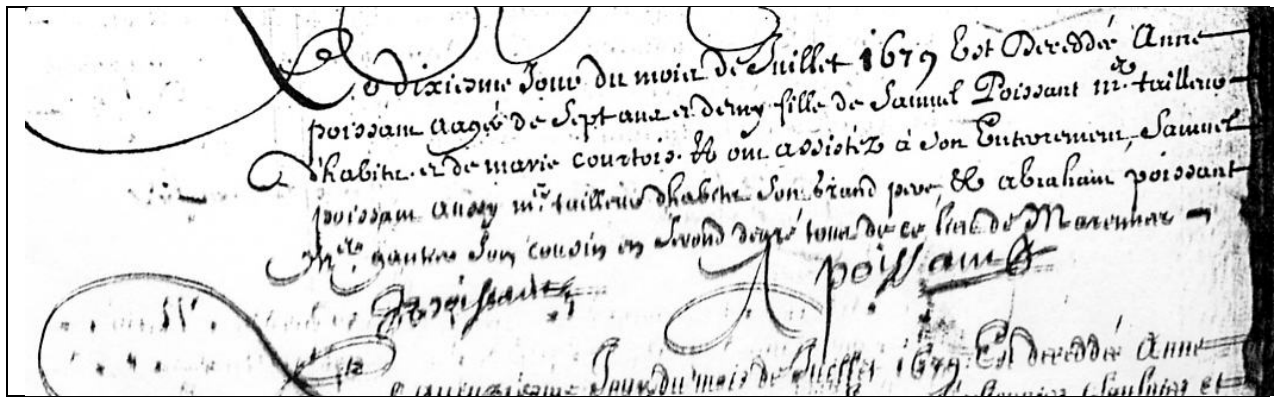 Le dixiesme Jour du mois de Juillet 1679 Est Decedée Anne
poissant aagée de Sept ans et demy fille de Samuel Poissant mer tailleur
d'habitz et de marie courtois. Et ont assistéz à son Enterement, Samuel
poissant aussy mer tailleur d'habitz son Grand pere & abraham poissant
mer gantier son cousin en second degré tous de ce lieu de Marennes
Poissant
poissant
quinziesme Jour du mois de Juillet 1679. Est decedée Anne
et